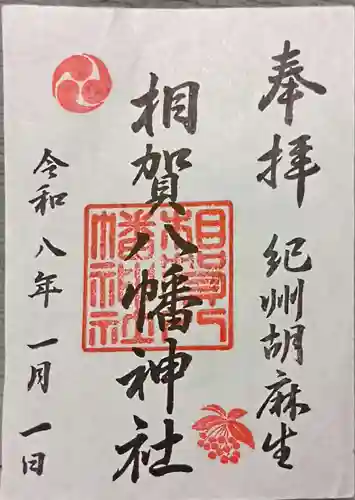 奉拝
紀州胡麻生
相賀八幡神社
相賀八幡神社
令和八年一月一日